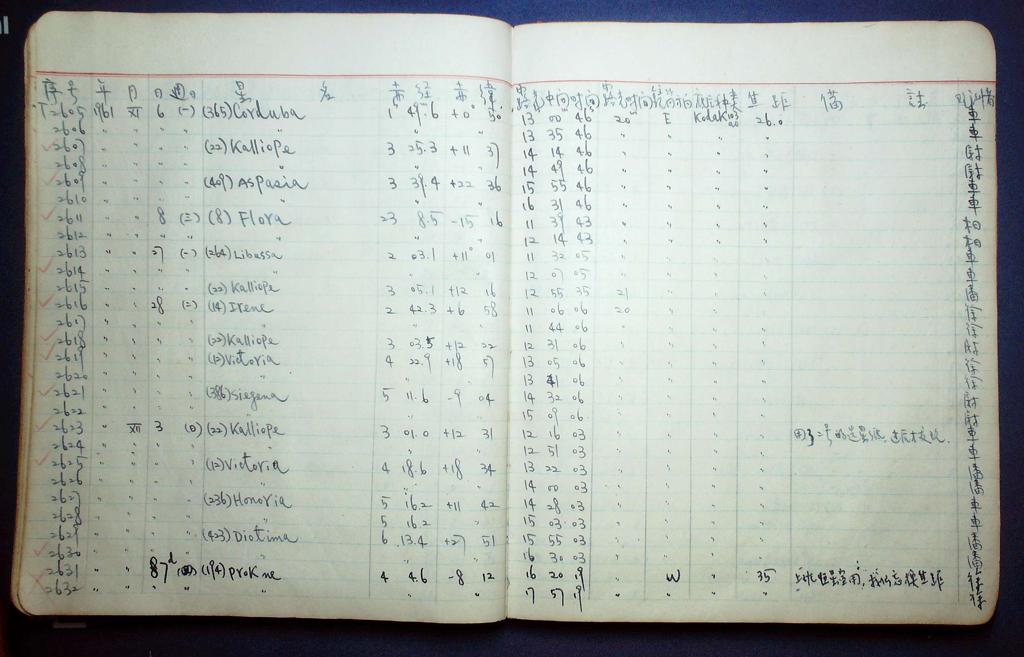 序号 年 月 日 週日 星 名 赤 经 赤 緯 露光中间时间 露光时间 底片种类 焦距 備 註 观测者
2605 1961 XI 6 (一) (365) Corduba 1 49.6 +0° 50 13 00 46 20 E Kodak 103 26.0 車
2606 " " " " 13 35 46 " " " " 車
2607 " " (22) Kalliope 3 25.3 +11 37 14 14 46 " " " "
2608 " " " " 14 49 46 " " " "
2609 " " (409) Aspasia 3 39.4 +22 36 15 55 46 " " " " 車
2610 " " " " 16 31 46 " " " " 車
2611 " " 8 (三) (8) Flora 23 8.5 -15 16 11 39 43 " " " " 相
2612 " " " " 12 14 43 " " " " 相
2613 " " 27 (一) (264) Libussa 2 03.1 +11° 01 11 32 05 " " " 車
2614 " " " " 12 07 05 " " " 車
2615 " " (22) Kalliope 3 05.1 +12 16 12 55 35 21 " " 潘
2616 " " 28 (二) (14) Irene 2 42.3 +6 58 11 06 06 20 " " 徐
2617 " " " " 11 44 06 " " " " 徐
2618 " " (22) Kalliope 3 03.5 +12 22 12 31 06 " " " "
2619 " " (12) Victoria 4 22.9 +18 57 13 05 06 " " " " 徐
2620 " " " " 13 41 06 " " " " 徐
2621 " " (386) Siegena 5 11.6 -9 04 14 32 06 " " " "
2622 " " " " 15 09 06 " " " "
2623 " XII 3 (0) (22) Kalliope 3 01.0 +12 31 12 16 03 " " " " 車
2624 " " " " 12 51 03 " " " " 車
2625 " " (12) Victoria 4 18.6 +18 34 13 22 03 " " " " 潘
2626 " " " " 14 00 03 " " " " 潘
2627 " " (236) Honoria 5 16.2 +11 42 14 28 03 " " " " 車
2628 " " " 5 16.2 " 15 03 03 " " " " 車
2629 " " (423) Diotima 6 13.4 +27 51 15 55 03 " " " " 潘
2630 " " " " 16 30 03 " " " " 潘
2631 " " (194) Prokne 4 46 -8 12 16 20 19 " W " 35 徐
2632 " " " " 17 57 19 " " " " 徐